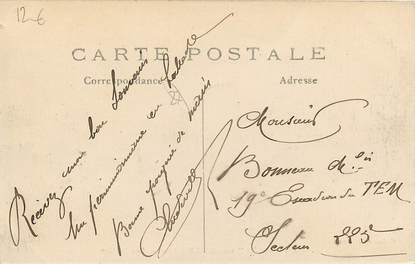 12-6
CARTE POSTALE
Correspondance
Adresse
Recevez mon bon Souvenir
Un permissionnaire en
Bonne poignée de mains
Monsieur
Bonneau
19e Escadron du TEM
Secteur 225